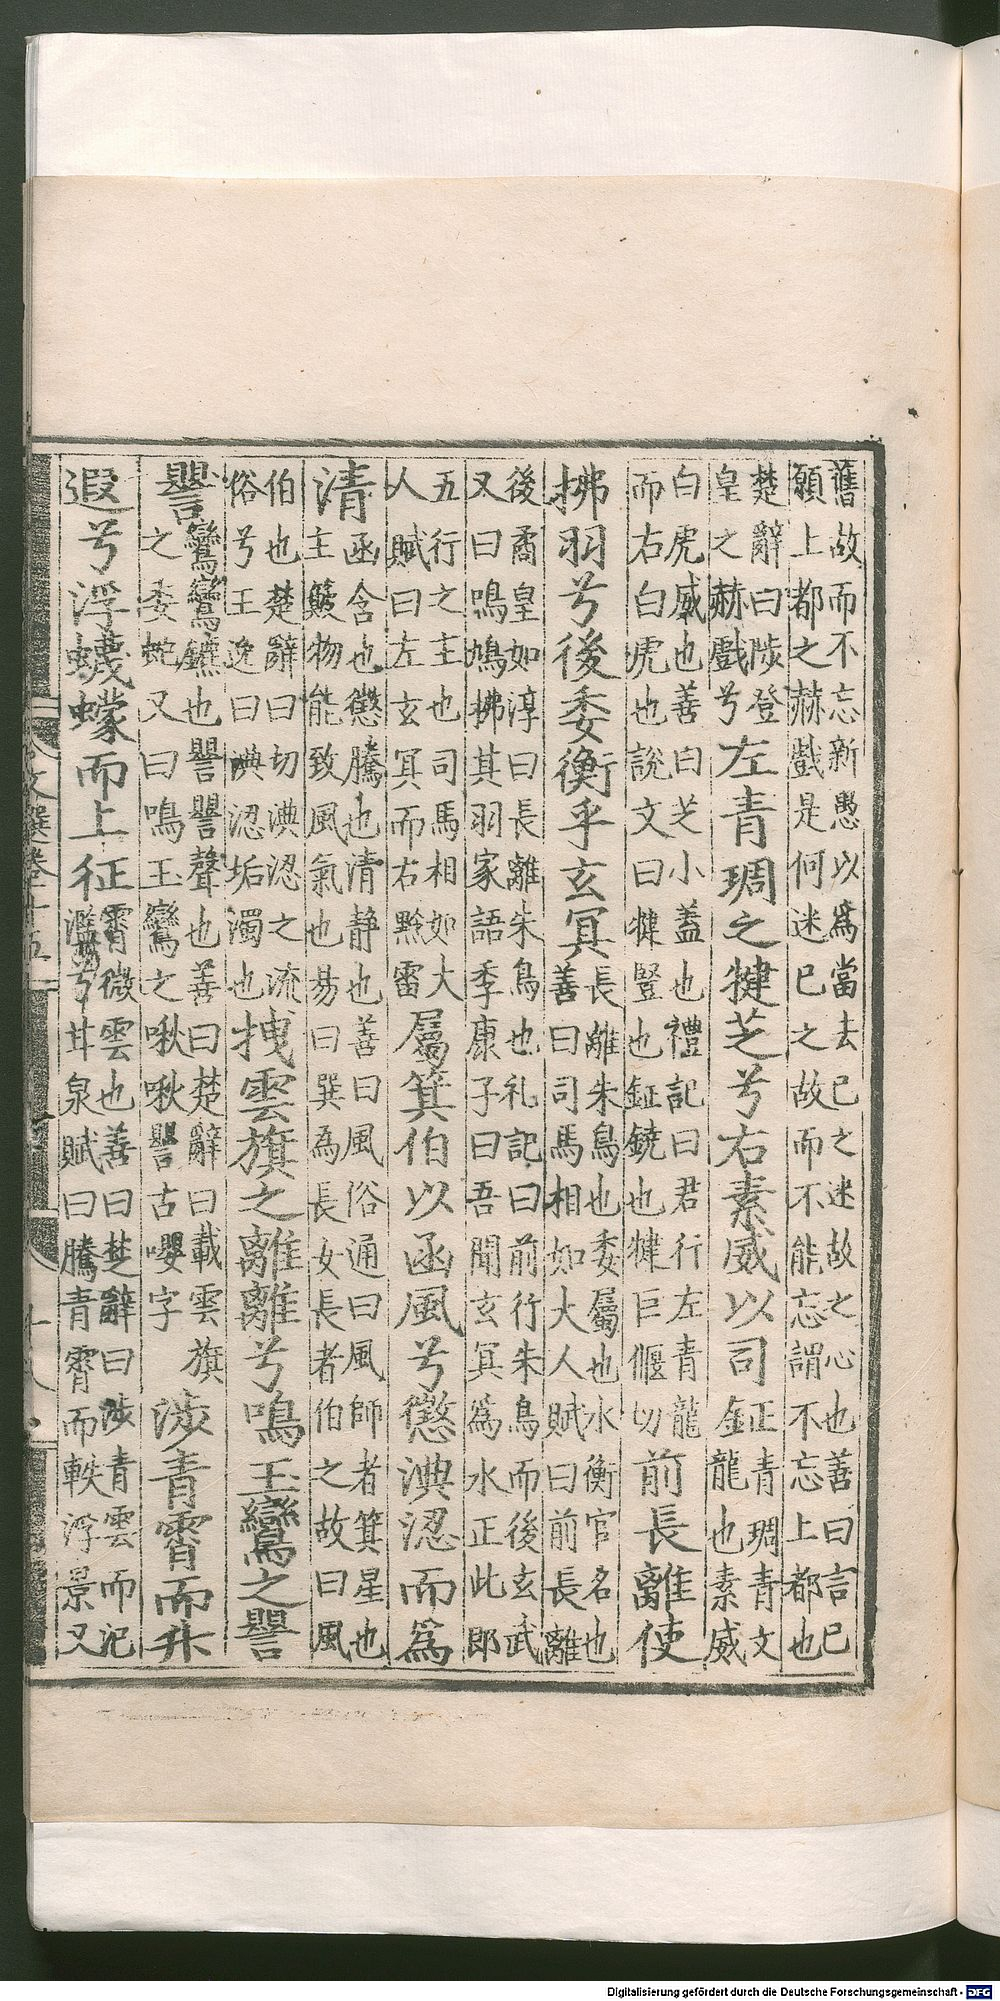 舊故而不忘新愚以爲當去已之迷故之心也善曰言已
願上都之赫戲是何迷已之故而不能忘謂不忘上都也
楚辭曰陟登
皇之赫戲兮
左青琱之揵芝兮右素威以司
鉦青琱青文
龍也素威
白虎威也善曰芝小蓋也禮記曰君行左青龍
而右白虎也說文曰揵豎也鉦鐃也揵巨偃切
前長離使
拂羽兮後委衡乎玄冥
長離朱鳥也委屬也水衡官名也
善曰司馬相如大人賦曰前長離
後矞皇如淳曰長離朱鳥也礼記曰前行朱鳥而後玄武
又曰鳴鳩拂其羽家語季康子曰吾聞玄冥爲水正此郎
五行之主也司馬相如大
人賦曰左玄冥而右黔雷
屬箕伯以函風兮懲淟涊而爲
清
函含也懲騰也清静也善曰風俗通曰風師者箕星也
主簸物能致風氣也昜曰巽為長女長者伯之故曰風
伯也楚辭曰切淟涊之流
俗兮王逸曰淟涊垢濁也
拽雲旗之離離兮鳴玉鸞之譻
譻
鸞鸞鑣也譻譻聲也善曰楚辭曰載雲旗
之委蛇又曰鳴玉鸞之啾啾譻古嚶字
涉青霄而升
遐兮浮蠛蠓而上征
霄微雲也善曰楚辭曰涉青雲而汜
濫兮甘泉賦曰騰青霄而軼浮景又
文選卷十五
十八
Digitalisierung gefördert durch die Deutsche Forschungsgemeinschaft - DFG